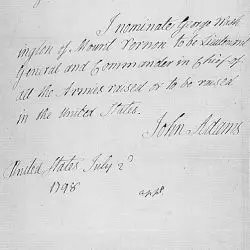 I nominate George Wash
ington of Mount Vernon to be Lieutenant
General and Commander in Chief of
all the Armies raised or to be raised
in the United States.
John Adams
United States July 2d
1798